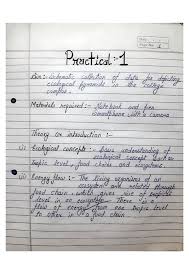 Practical:-1
Aim:- Systematic collection of data for depicting
ecological pyramids in the college
campus.
Materials required:- Notebook and pen
smartphone with a camera
Theory or introduction:-
(i) Ecological concepts:- Basic understanding
of ecological concept such as
trophic level, food chains and ecosystems.
(ii) Energy flow:- The living organisms of an
ecosystem are related through
food chain which gives rise of trophic
level in an ecosystem. There is a
flow of energy from one trophic level
to other in a food chain